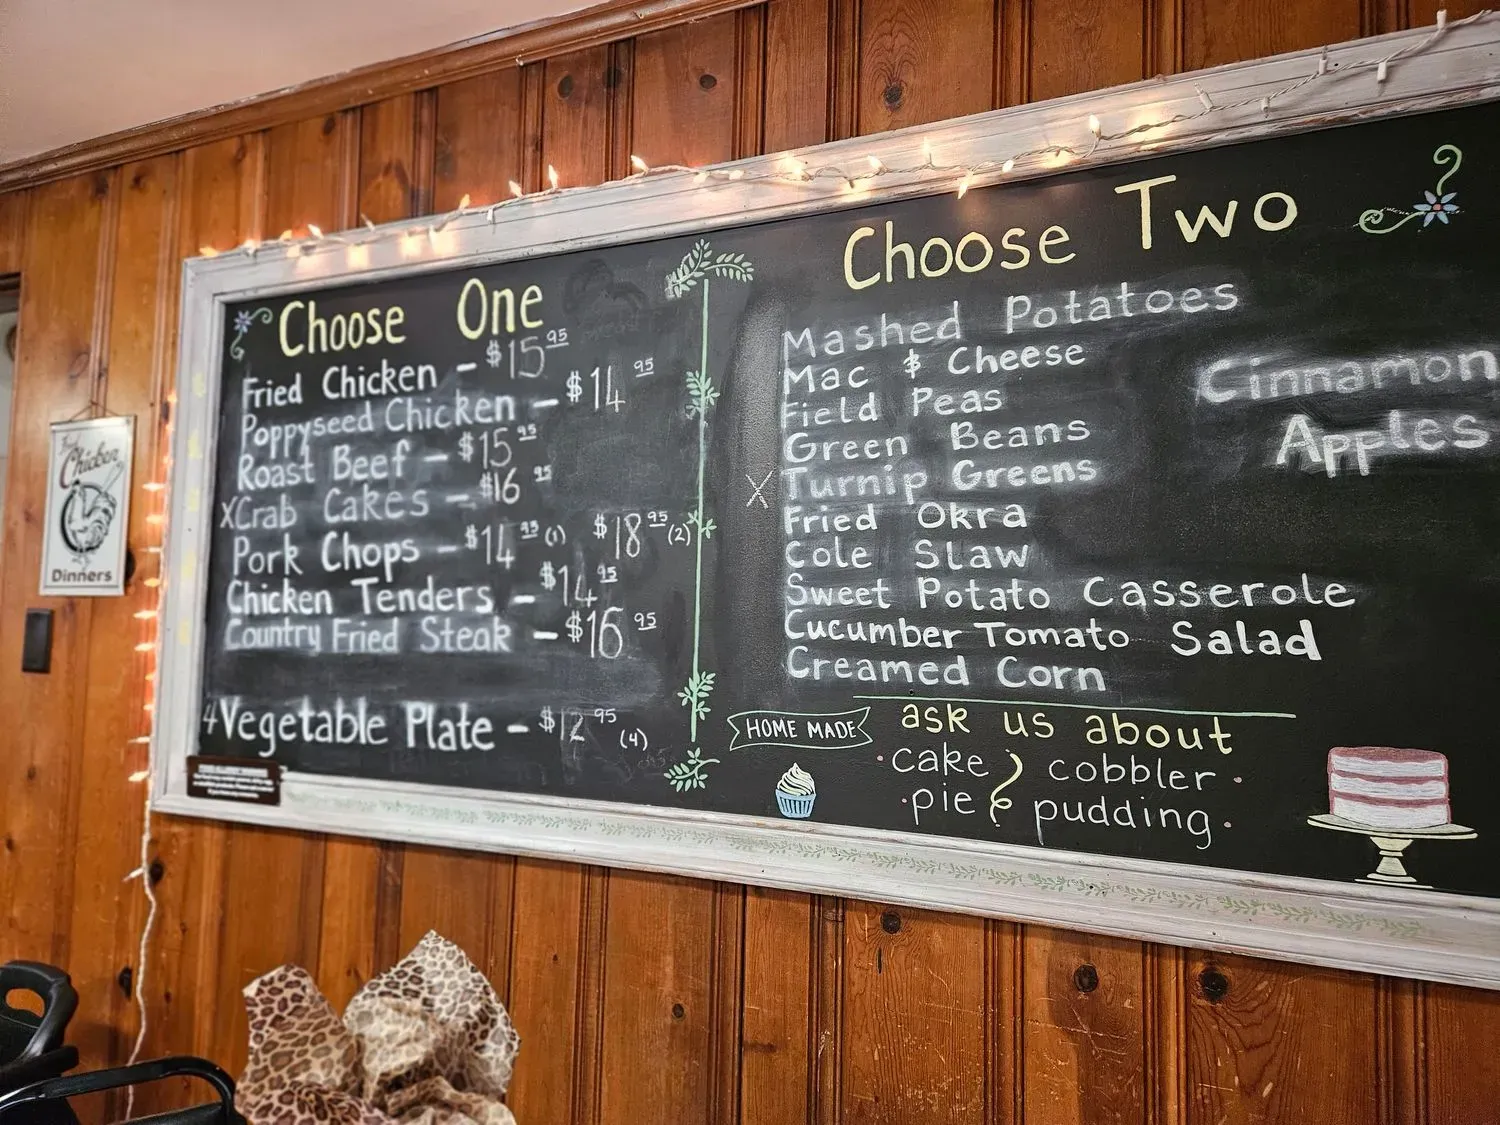 Choose One
Fried Chicken - $15 95
Poppyseed Chicken - $14 95
Roast Beef - $15 95
X Crab Cakes - $16 95
Pork Chops - $14 95 (1) $18 95 (2)
Chicken Tenders - $14 95
Country Fried Steak - $16 95
4 Vegetable Plate - $12 95 (4)
Choose Two
Mashed Potatoes
Mac & Cheese
Field Peas
Green Beans
X Turnip Greens
Fried Okra
Cole Slaw
Sweet Potato Casserole
Cucumber Tomato Salad
Creamed Corn
Cinnamon
Apples
HOME MADE
ask us about
· cake } cobbler ·
· pie } pudding ·
Chicken
Dinners